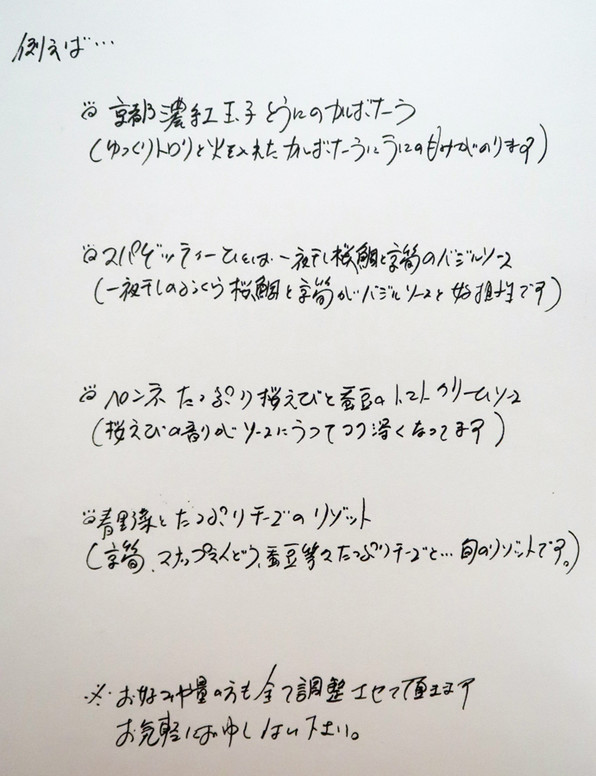 例えば…
京都濃紅玉子とうにのかるぼなーら
(ゆっくりトロリと火を入れたかるぼなーらにうにの甘みがのります)
スパゲッティーには、一夜干し桜鯛と京筍のバジルソース
(一夜干しのふっくら桜鯛と京筍がバジルソースと好相性です)
ペンネ たっぷり桜えびと蚕豆のトマトクリームソース
(桜えびの香りがソースにうつってコク深くなってます)
春野菜とたっぷりチーズのリゾット
(京筍、スナップえんどう、蚕豆等々たっぷりチーズと…旬のリゾットです。)
※お好みや量の方も全て調整させて頂きます
お気軽にお申し付け下さい。